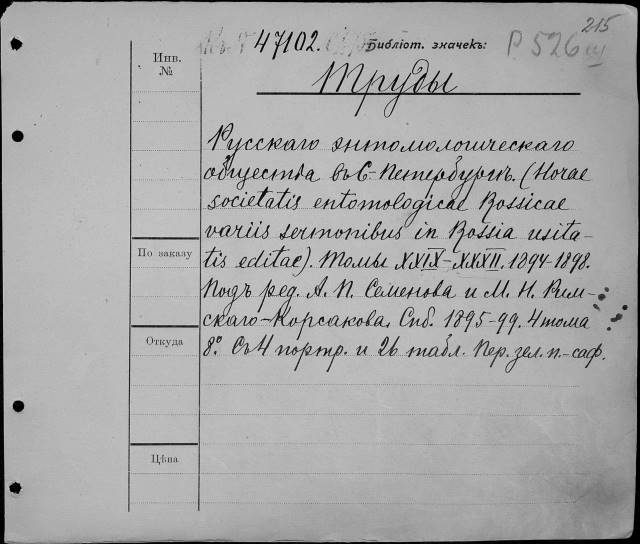 215
47102.
Библіот. значекъ:
P 526 III
Инв.
№
Труды
Русскаго энтомологическаго
общества въ С-Петербургѣ. (Horae
societatis entomologicae Rossicae
variis sermonibus in Rossia usita-
tis editae). Томы XXIX-XXXII. 1894-1898.
Подъ ред. А. П. Семенова и М. Н. Рим-
скаго-Корсакова. Спб. 1895-99. 4 тома
8º. Съ 4 портр. и 26 табл. Пер. зел. п.-саф.
По заказу
Откуда
Цѣна